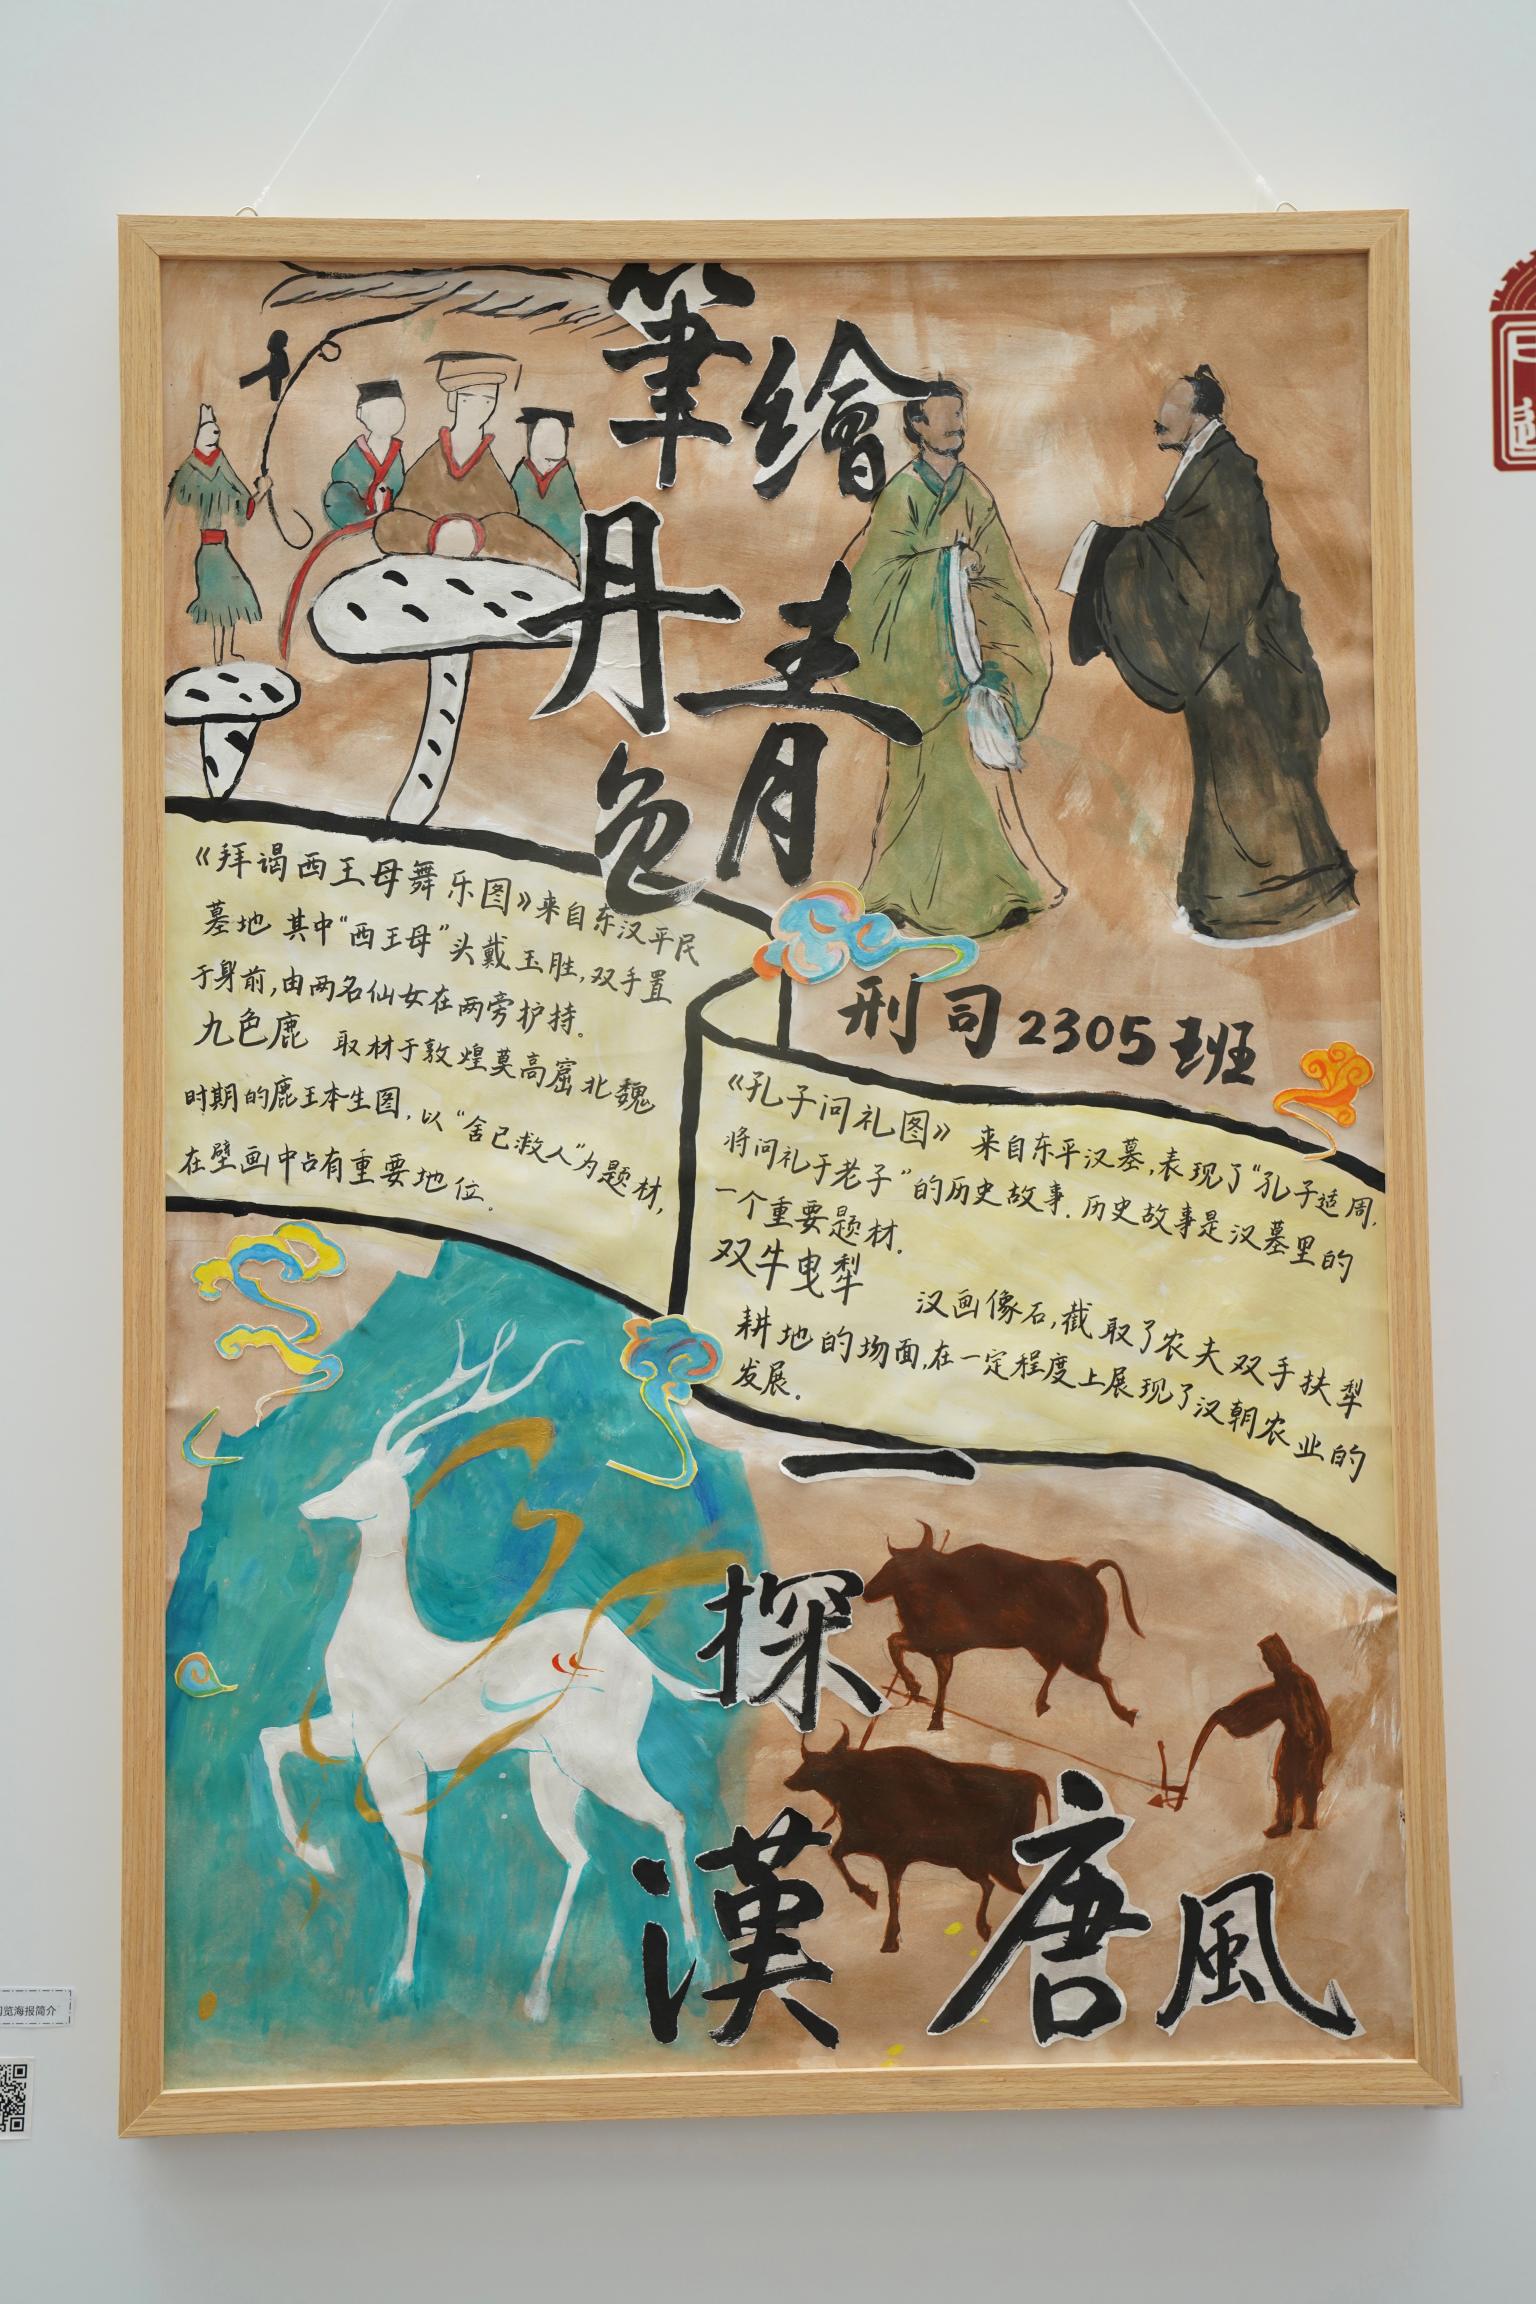 筆繪
丹青
色
《拜谒西王母舞乐图》来自东汉平民
墓地 其中“西王母”头戴玉胜,双手置
于身前,由两名仙女在两旁护持。
九色鹿 取材于敦煌莫高窟北魏
时期的鹿王本生图,以“舍己救人”为题材,
在壁画中占有重要地位。
刑司2305班
《孔子问礼图》 来自东平汉墓,表现了“孔子适周,
将问礼于老子”的历史故事.历史故事是汉墓里的
一个重要题材.
双牛曳犁 汉画像石,截取了农夫双手扶犁
耕地的场面,在一定程度上展现了汉朝农业的
发展.
一
探
漢唐風
览海报简介